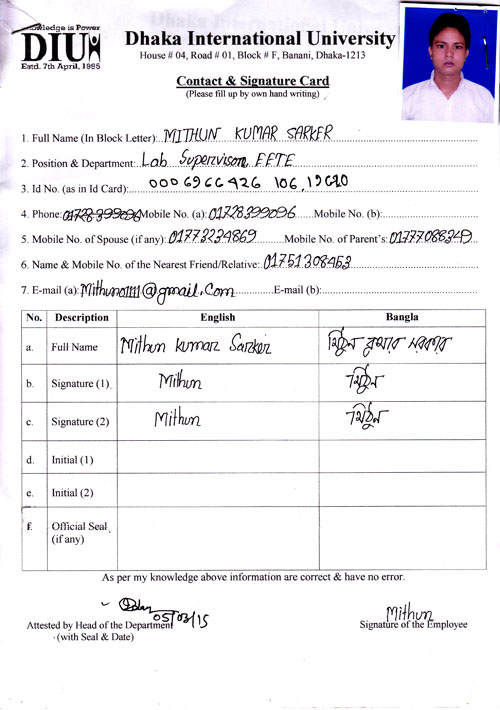 Knowledge is Power
DIU
Estd. 7th April, 1995
Dhaka International University
House # 04, Road # 01, Block # F, Banani, Dhaka-1213
Contact & Signature Card
(Please fill up by own hand writing)
1. Full Name (In Block Letter): MITHUN KUMAR SARKER
2. Position & Department: Lab Supervisor, EETE
3. Id No. (as in Id Card): 0006966426 106,19620
4. Phone: 01728399096 Mobile No. (a): 01728399096 Mobile No. (b):
5. Mobile No. of Spouse (if any): 01773234869 Mobile No. of Parent's: 01777088349
6. Name & Mobile No. of the Nearest Friend/Relative: 01751308453
7. E-mail (a): Mithun01111@gmail.Com E-mail (b):
No. Description English Bangla
a. Full Name Mithun Kumar Sarker মিঠুন কুমার সরকার
b. Signature (1) Mithun মিঠুন
c. Signature (2) Mithun মিঠুন
d. Initial (1)
e. Initial (2)
f. Official Seal
(if any)
As per my knowledge above information are correct & have no error.
05/03/15
Mithun
Attested by Head of the Department
(with Seal & Date)
Signature of the Employee